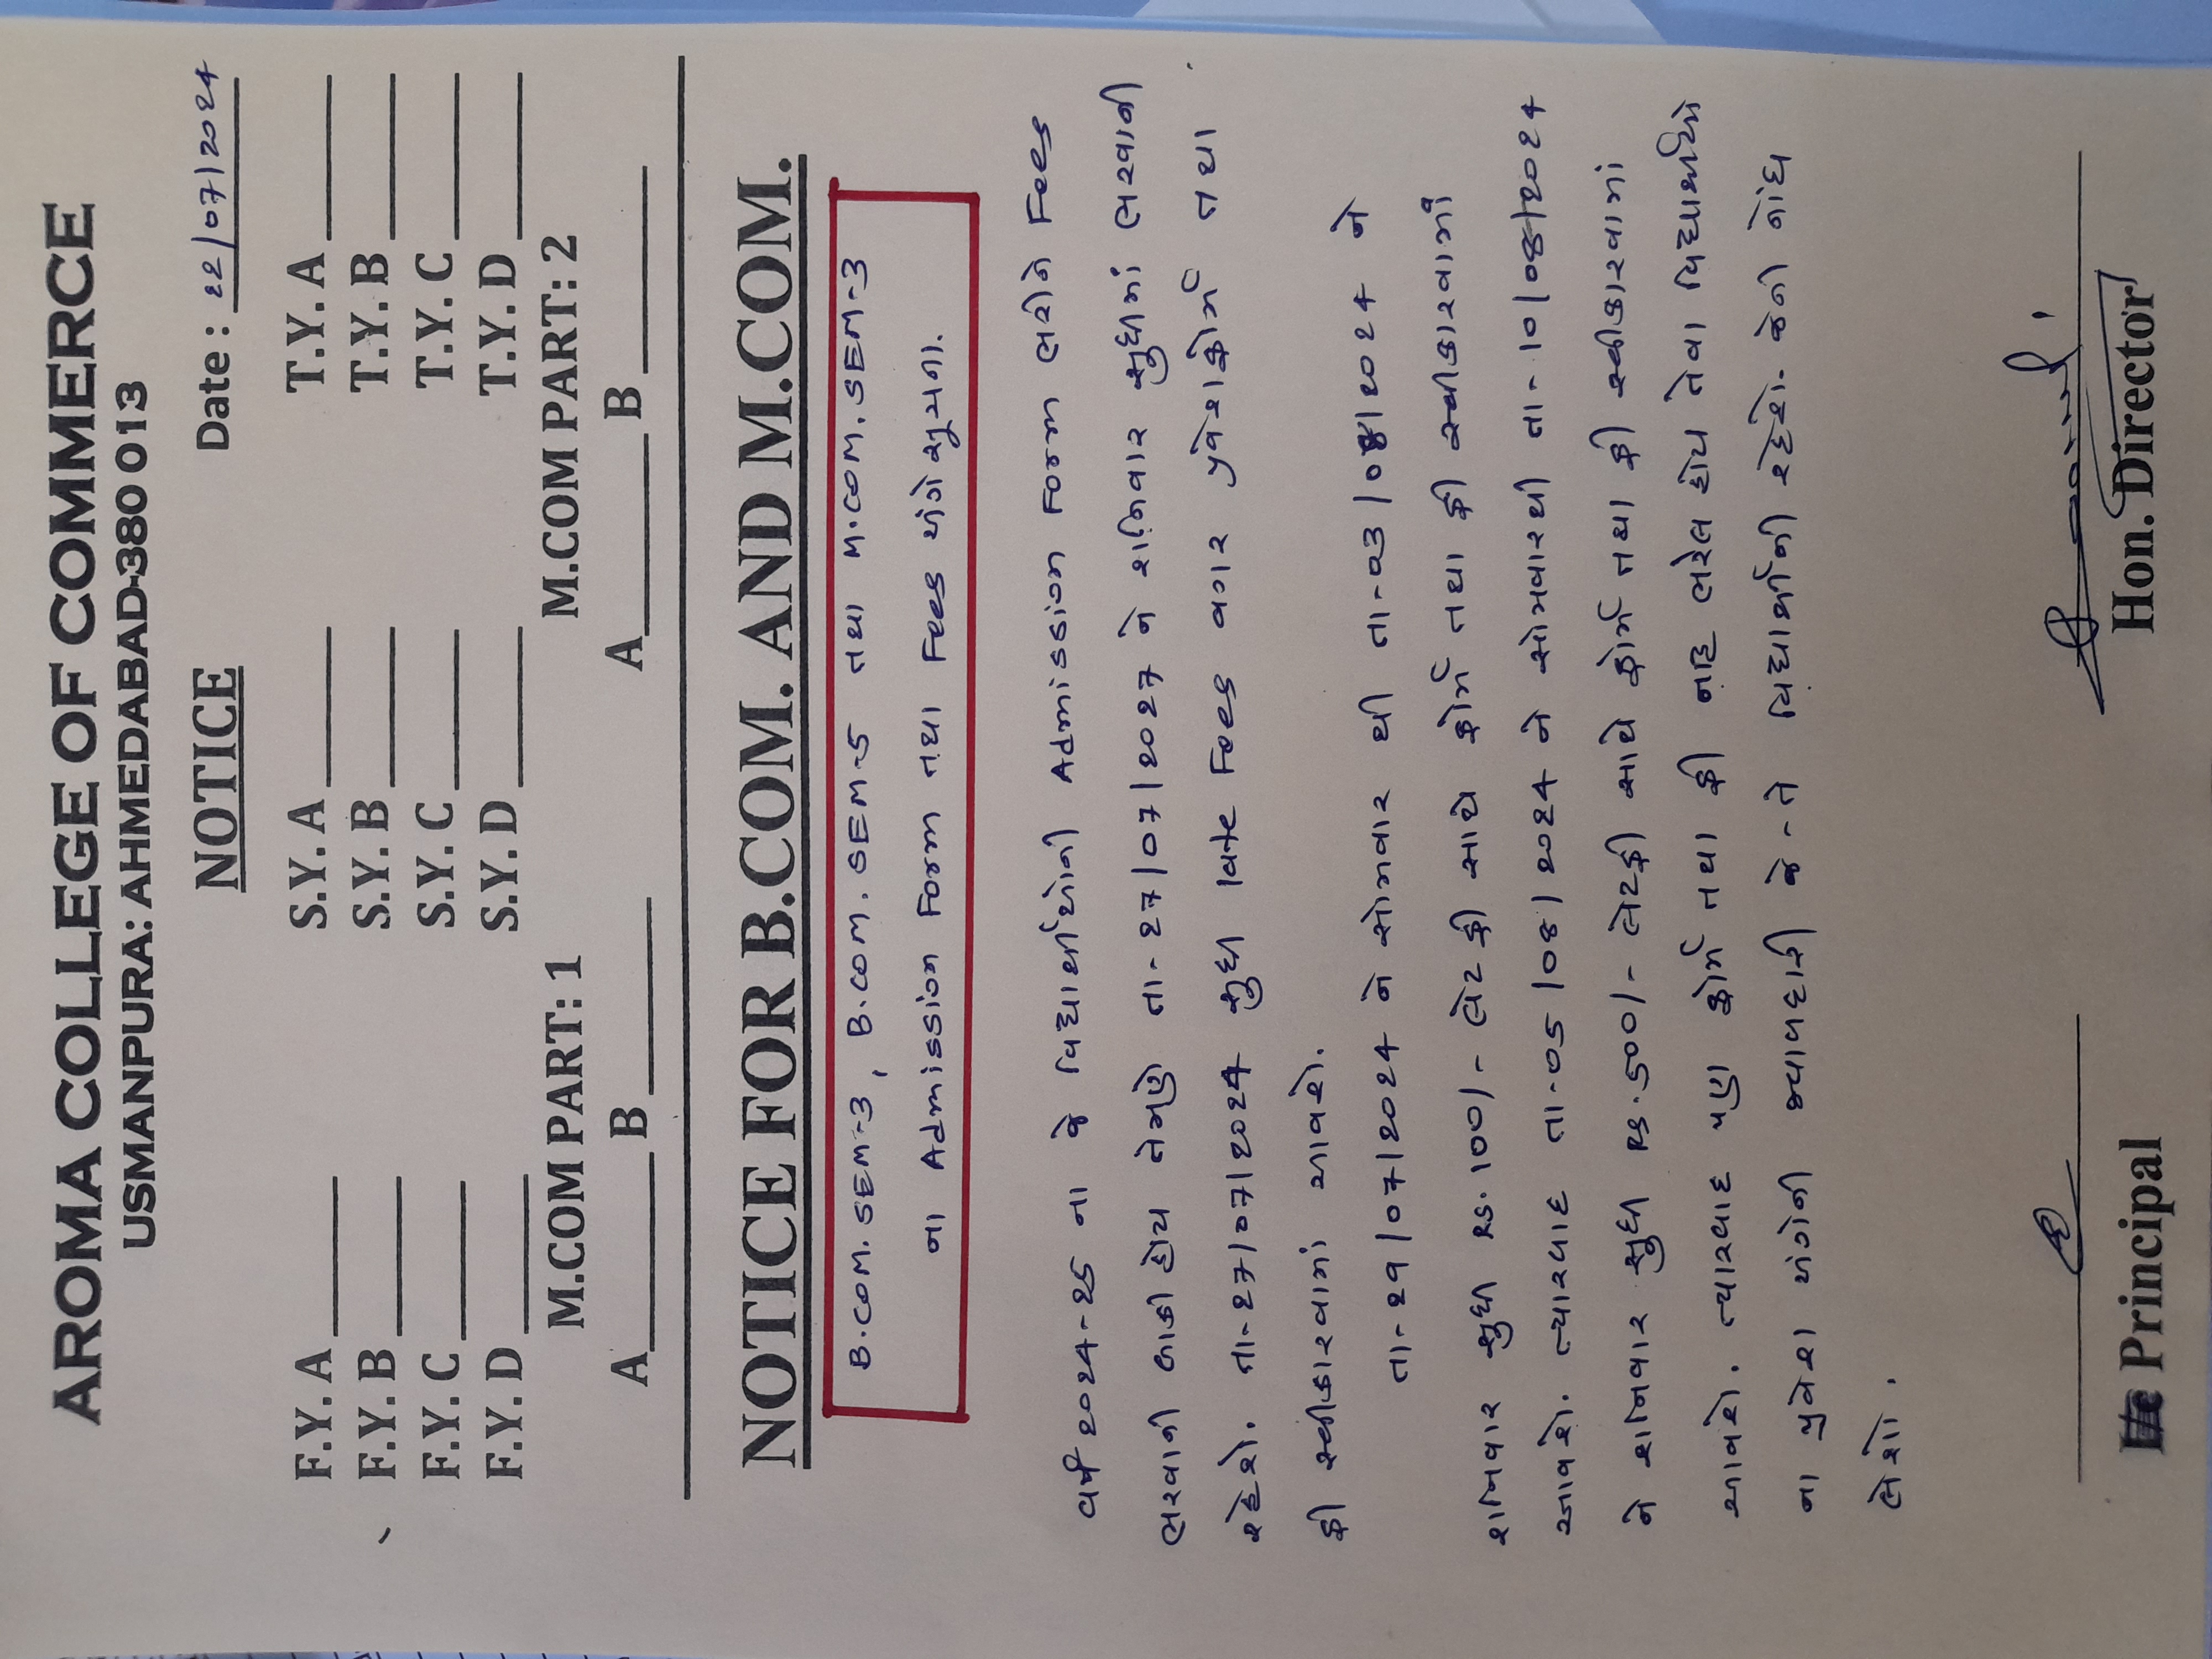 AROMA COLLEGE OF COMMERCE
USMANPURA: AHMEDABAD-380 013
NOTICE Date : 22/07/2024
F.Y. A S.Y. A T.Y. A
F.Y. B S.Y. B T.Y. B
F.Y. C S.Y. C T.Y. C
F.Y. D S.Y. D T.Y. D
M.COM PART: 1 M.COM PART: 2
A B A B
NOTICE FOR B.COM. AND M.COM.
B.COM. SEM-3, B.COM. SEM-5 તથા M.COM. SEM-3
ના Admission Form તથા Fees અંગે સૂચના.
વર્ષ ૨૦૨૪-૨૫ ના જે વિદ્યાર્થીઓની Admission Form ભરીને Fees
ભરવાની બાકી હોય તેમણે તા-૨૭/૦૭/૨૦૨૭ ને શનિવાર સુધીમાં ભરવાની
રહેશે. તા-૨૭/૦૭/૨૦૨૪ સુધી late Fees વગર પ્રવેશફોર્મ તથા
ફી સ્વીકારવામાં આવશે.
તા-૨૯/૦૭/૨૦૨૪ ને સોમવાર થી તા-૦૩/૦૮/૨૦૨૪ ને
શનિવાર સુધી રૂા.૧૦૦/- લેટ ફી સાથે ફોર્મ તથા ફી સ્વીકારવામાં
આવશે. ત્યારબાદ તા-૦૫/૦૮/૨૦૨૪ ને સોમવારથી તા-૧૦/૦૮/૨૦૨૪
ને શનિવાર સુધી રૂા.૫૦૦/- લેટફી સાથે ફોર્મ તથા ફી સ્વીકારવામાં
આવશે. ત્યારબાદ પણ ફોર્મ તથા ફી નહિ ભરેલ હોય તેવા વિદ્યાર્થીઓ
ના પ્રવેશ અંગેની જવાબદારી જે-તે વિદ્યાર્થીની રહેશે. જેની નોંધ
લેશો.
Principal Hon. Director